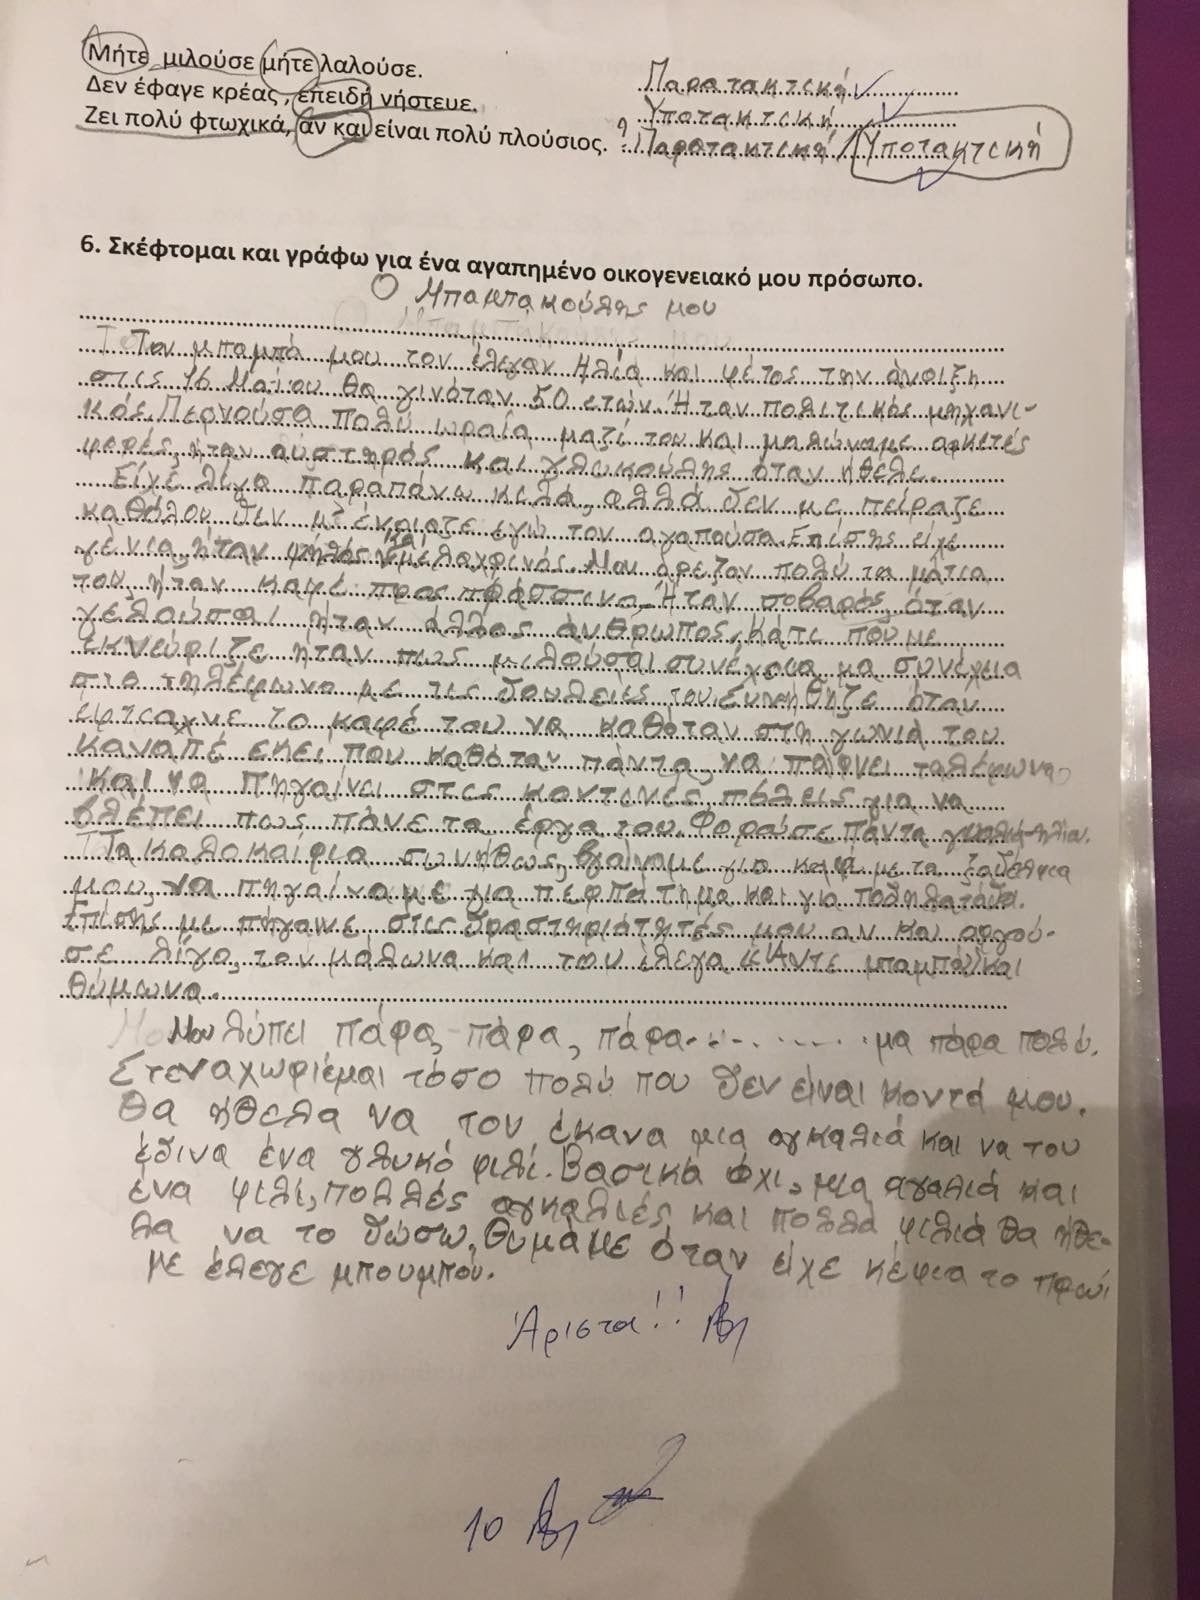 Μήτε μιλούσε μήτε λαλούσε. Παρατακτική
Δεν έφαγε κρέας, επειδή νήστευε. Υποτακτική
Ζει πολύ φτωχικά, αν και είναι πολύ πλούσιος. ? Παρατακτική / Υποτακτική
6. Σκέφτομαι και γράφω για ένα αγαπημένο οικογενειακό μου πρόσωπο.
Ο Μπαμπακούλης μου
Τον μπαμπά μου τον έλεγαν Ηλία και φέτος την άνοιξη
στις 16 Μαΐου θα γινόταν 50 ετών. Ήταν πολιτικός μηχανι-
κός. Περνούσα πολύ ωραία μαζί του και μαλώναμε αρκετές
φερές, ήταν αύστηρός και γλυκούλης όταν ήθελε.
Είχε λίγα παραπάνω κιλά, αλλά δεν με πείραζε
καθόλου δεν μ' ένοιαζε εγώ τον αγαπούσα. Επίσης είχε
γένια, ήταν ψηλός και μελαχρινός. Μου άρεζαν πολύ τα μάτια
του ήταν καφέ προς πράσινο. Ήταν σοβαρός, όταν
γελούσαι ήταν άλλος άνθρωπος. Κάτι που με
εκνεύριζε ήταν πως μιλούσαι συνέχεια μα συνέχεια
στο τηλέφωνο με τις δουλειές του. Συνηθηζε όταν
έφτιαχνε το καφέ του να καθόταν στη γωνιά του
καναπέ εκεί που καθόταν πάντα, να παίρνει τηλέφωνα
και να πηγαίνει στις κοντινές πόλεις για να
βλέπει πως πάνε τα έργα του. Φορούσε πάντα γυαλιά ηλίου.
Τα καλοκαίρια συνήθως, βγαίναμε για καφέ με τα ξαδέλφια
μου, να πηγαίναμε για περπάτημα και για ποδηλατάδα.
Επίσης με πήγαινε στις δραστηριότητές μου αν και αργού-
σε λίγο, τον μάλωνα και του έλεγα «Άντε μπαμπά» και
θύμωνα.
Μου λύπει πάρα, πάρα, πάρα............ μα πάρα πολύ.
Στεναχωριέμαι τόσο πολύ που δεν είναι κοντά μου.
Θα ήθελα να τον έκανα μια αγκαλιά και να του
έδινα ένα γλυκό φιλί. Βασικά όχι, μια αγαλιά και
ένα φιλί, πολλές αγκαλιές και πολλά φιλιά θα ήθε-
λα να το δώσω. Θυμάμε όταν είχε κέφια το πρωί
με έλεγε μπουμπου.
Άριστα!!
10